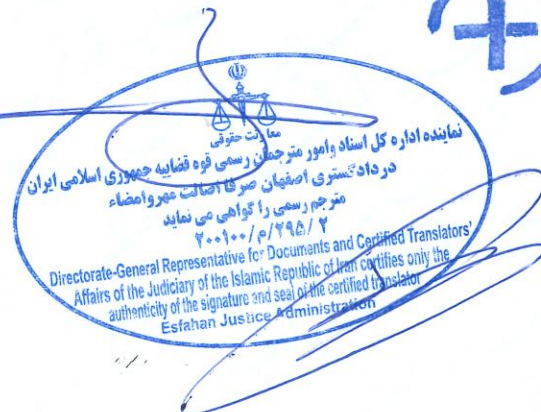 معاونت حقوقی
نماینده اداره کل اسناد وامور مترجمان رسمی قوه قضاییه جمهوری اسلامی ایران
در دادگستری اصفهان صرفا اصالت مهر وامضاء
مترجم رسمی را گواهی می نماید
۲۰۰۱۰۰/م/۲۹۵/۲
Directorate-General Representative for Documents and Certified Translators'
Affairs of the Judiciary of the Islamic Republic of Iran certifies only the
authenticity of the signature and seal of the certified translator
Esfahan Justice Administration